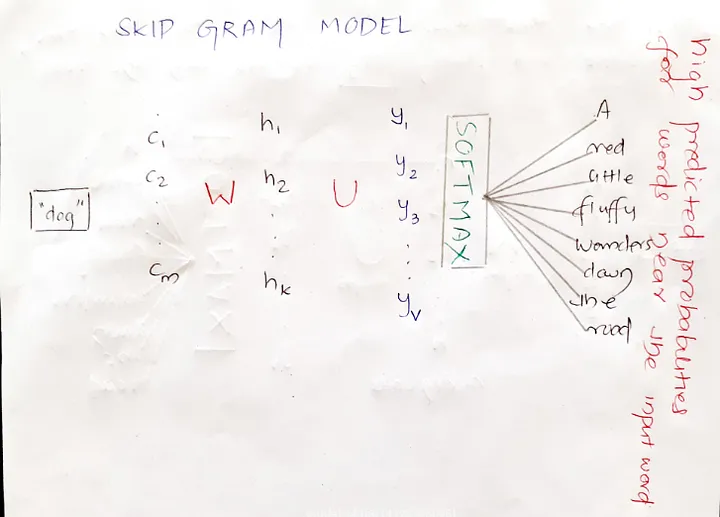 SKIP GRAM MODEL
"dog"
C1
C2
Cm
W
h1
h2
hk
U
y1
y2
y3
yv
SOFTMAX
A
red
little
fluffy
wanders
down
the
road
high predicted probabalities
for words near the input word